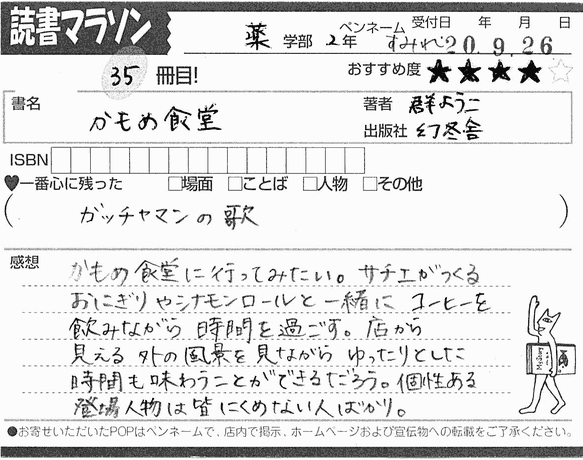 読書マラソン
薬 学部 2年 ペンネーム すみれ 受付日 年 月 日 20.9.26
35 冊目! おすすめ度 ★★★★☆
書名 かもめ食堂
著者 群ようこ
出版社 幻冬舎
ISBN
♥一番心に残った □場面 □ことば □人物 □その他
( ガッチャマンの歌 )
感想
かもめ食堂に行ってみたい。サチエがつくる
おにぎりやシナモンロールと一緒に コーヒーを
飲みながら 時間を過ごす。店から
見える 外の風景を見ながら ゆったりとした
時間も味わうことができるだろう。個性ある
登場人物は皆にくめない人ばかり。
●お寄せいただいたPOPはペンネームで、店内で掲示、ホームページおよび宣伝物への転載をご了承ください。